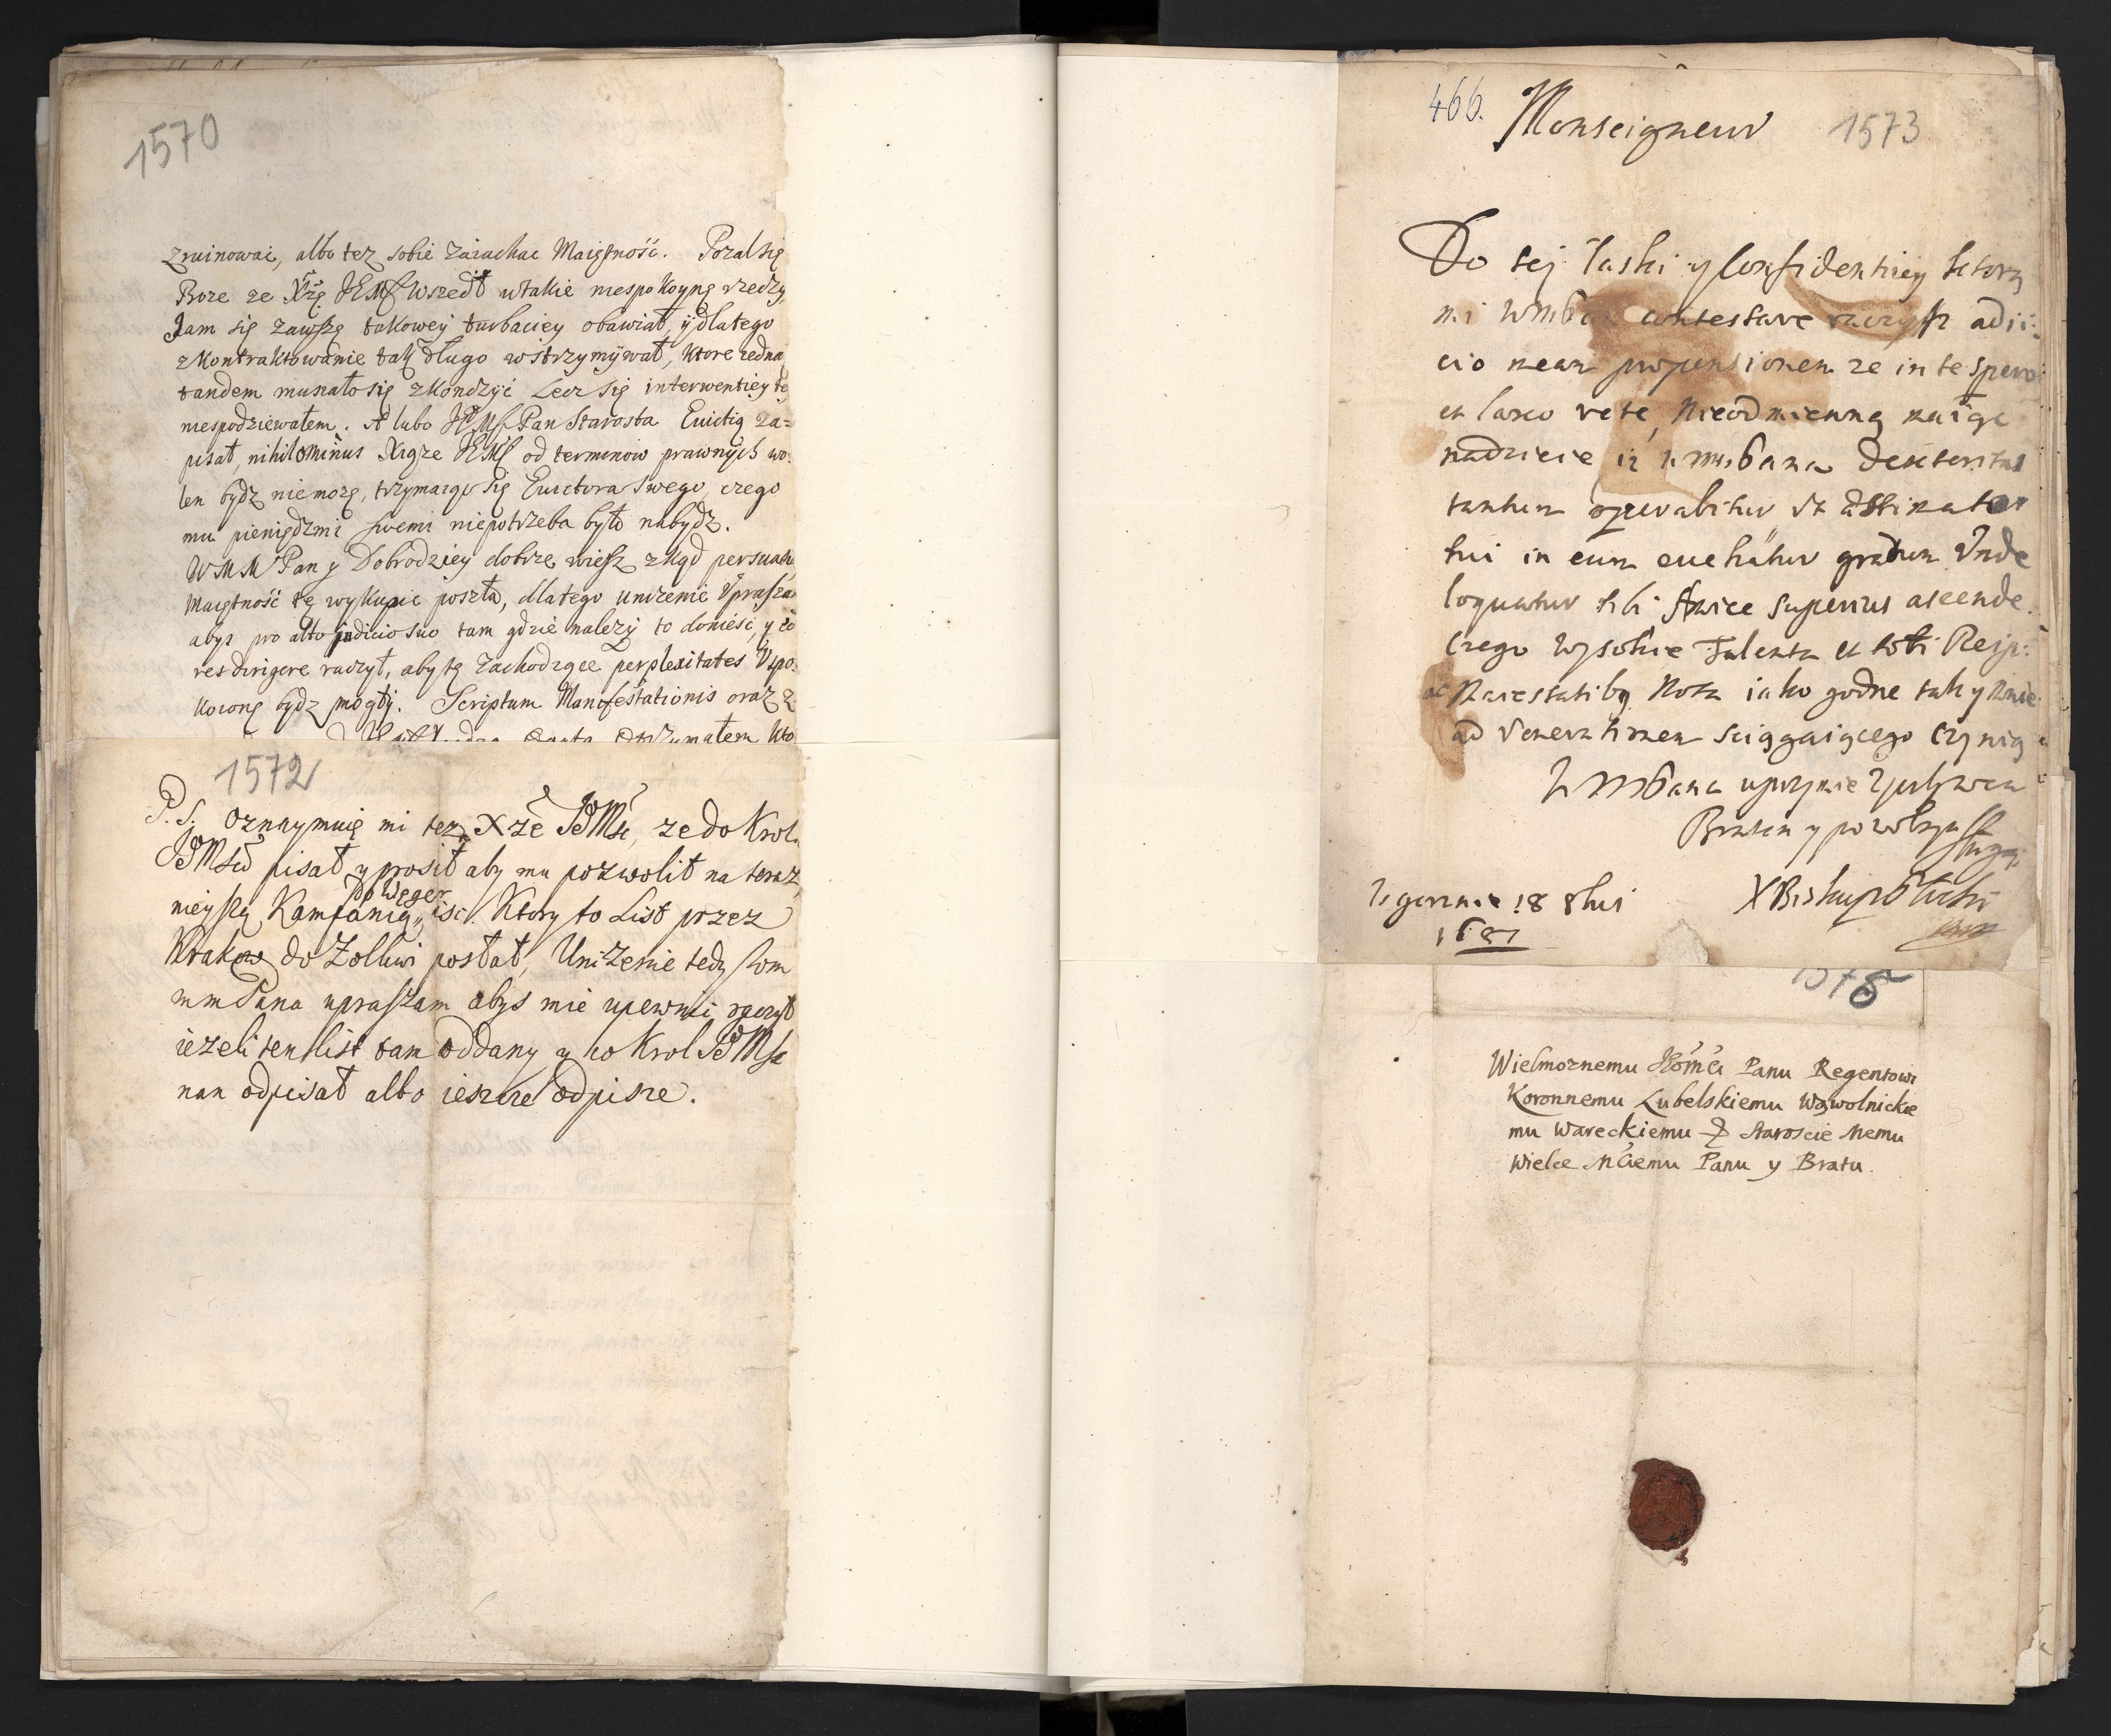 1570
zruinować, albo tez sobie zaiachac Maiętność. Pozal się
Boze ze Xżę JEMść wszedł w takie niespokoyne rzedzy,
Jam się zawszę takowey turbaciey obawiał, y dlatego
z kontraktowanie tak długo wstrzymywał, ktore iedna
tandem musiało się zkondzyć Lecz się interwentiey te
niespodziewałem. A lubo JEMść Pan Starosta Euictią za=
pisał, nihilominus Xiąże JEMść od terminow prawnych wo:
len bydz niemoze, trzymaiąc się Euictora swego, czego
mu pieniędzmi swemi niepotrzeba było nabydz.
WMM Pan y Dobrodziey dobrze wiesz zkąd persuasia
Maiętność tę wykupic poszła, dlatego unizenie Vprasza
abys pro alto judicio suo tam gdzie nalezy to doniesc, y eo
res dirigere raczył, aby te zachodzące perplexitates Vspo:
koione bydz mogły. Scriptum Manifestationis oraz z
otrzymałem kto
1572
P.S. Oznaymuię mi tez Xże JEMść, ze do Krol.
JEMści pisał y prosił aby mu pozwolił na teraz
do Węger
nieyszą Kampanią, iść. Ktory to List przez
Krakow do Zołkwi posłał, Unizenie tedy
mm Pana upraszam abys mie upewnić raczył
iezeli ten list tam oddany y co Krol JEMść
nan odpisał albo ieszcze odpisze.
466.
Monseigneur 1573
Do tej łaski y Confidentiey ktorą
mi WmPan contestare raczysz adii:
cio meam propensionem ze in te spero
et Nieodmienną maiąc
nadzieie iz WmPana dexteritas
tantum operabitur Vt æstimator
tui in eum euehatur gradum Vnde
loquatur tibi Amice superius ascende.
Czego wysokie Talenta et toti Reip:
ac Maiestatibus Nota iako godne tak y mnie
ad Venerationem sciągaiącego czynią
WmPana uprzymie zyczliwem
Bratem y powolnym sługą
X Biskup Łucki
18 8bris
1687
1575
Wielmoznemu Jemści Panu Regentowi
Koronnemu Lubelskiemu Wąwolnickie
mu Wareckiemu & Staroscie Memu
Wielce Mściemu Panu y Bratu.